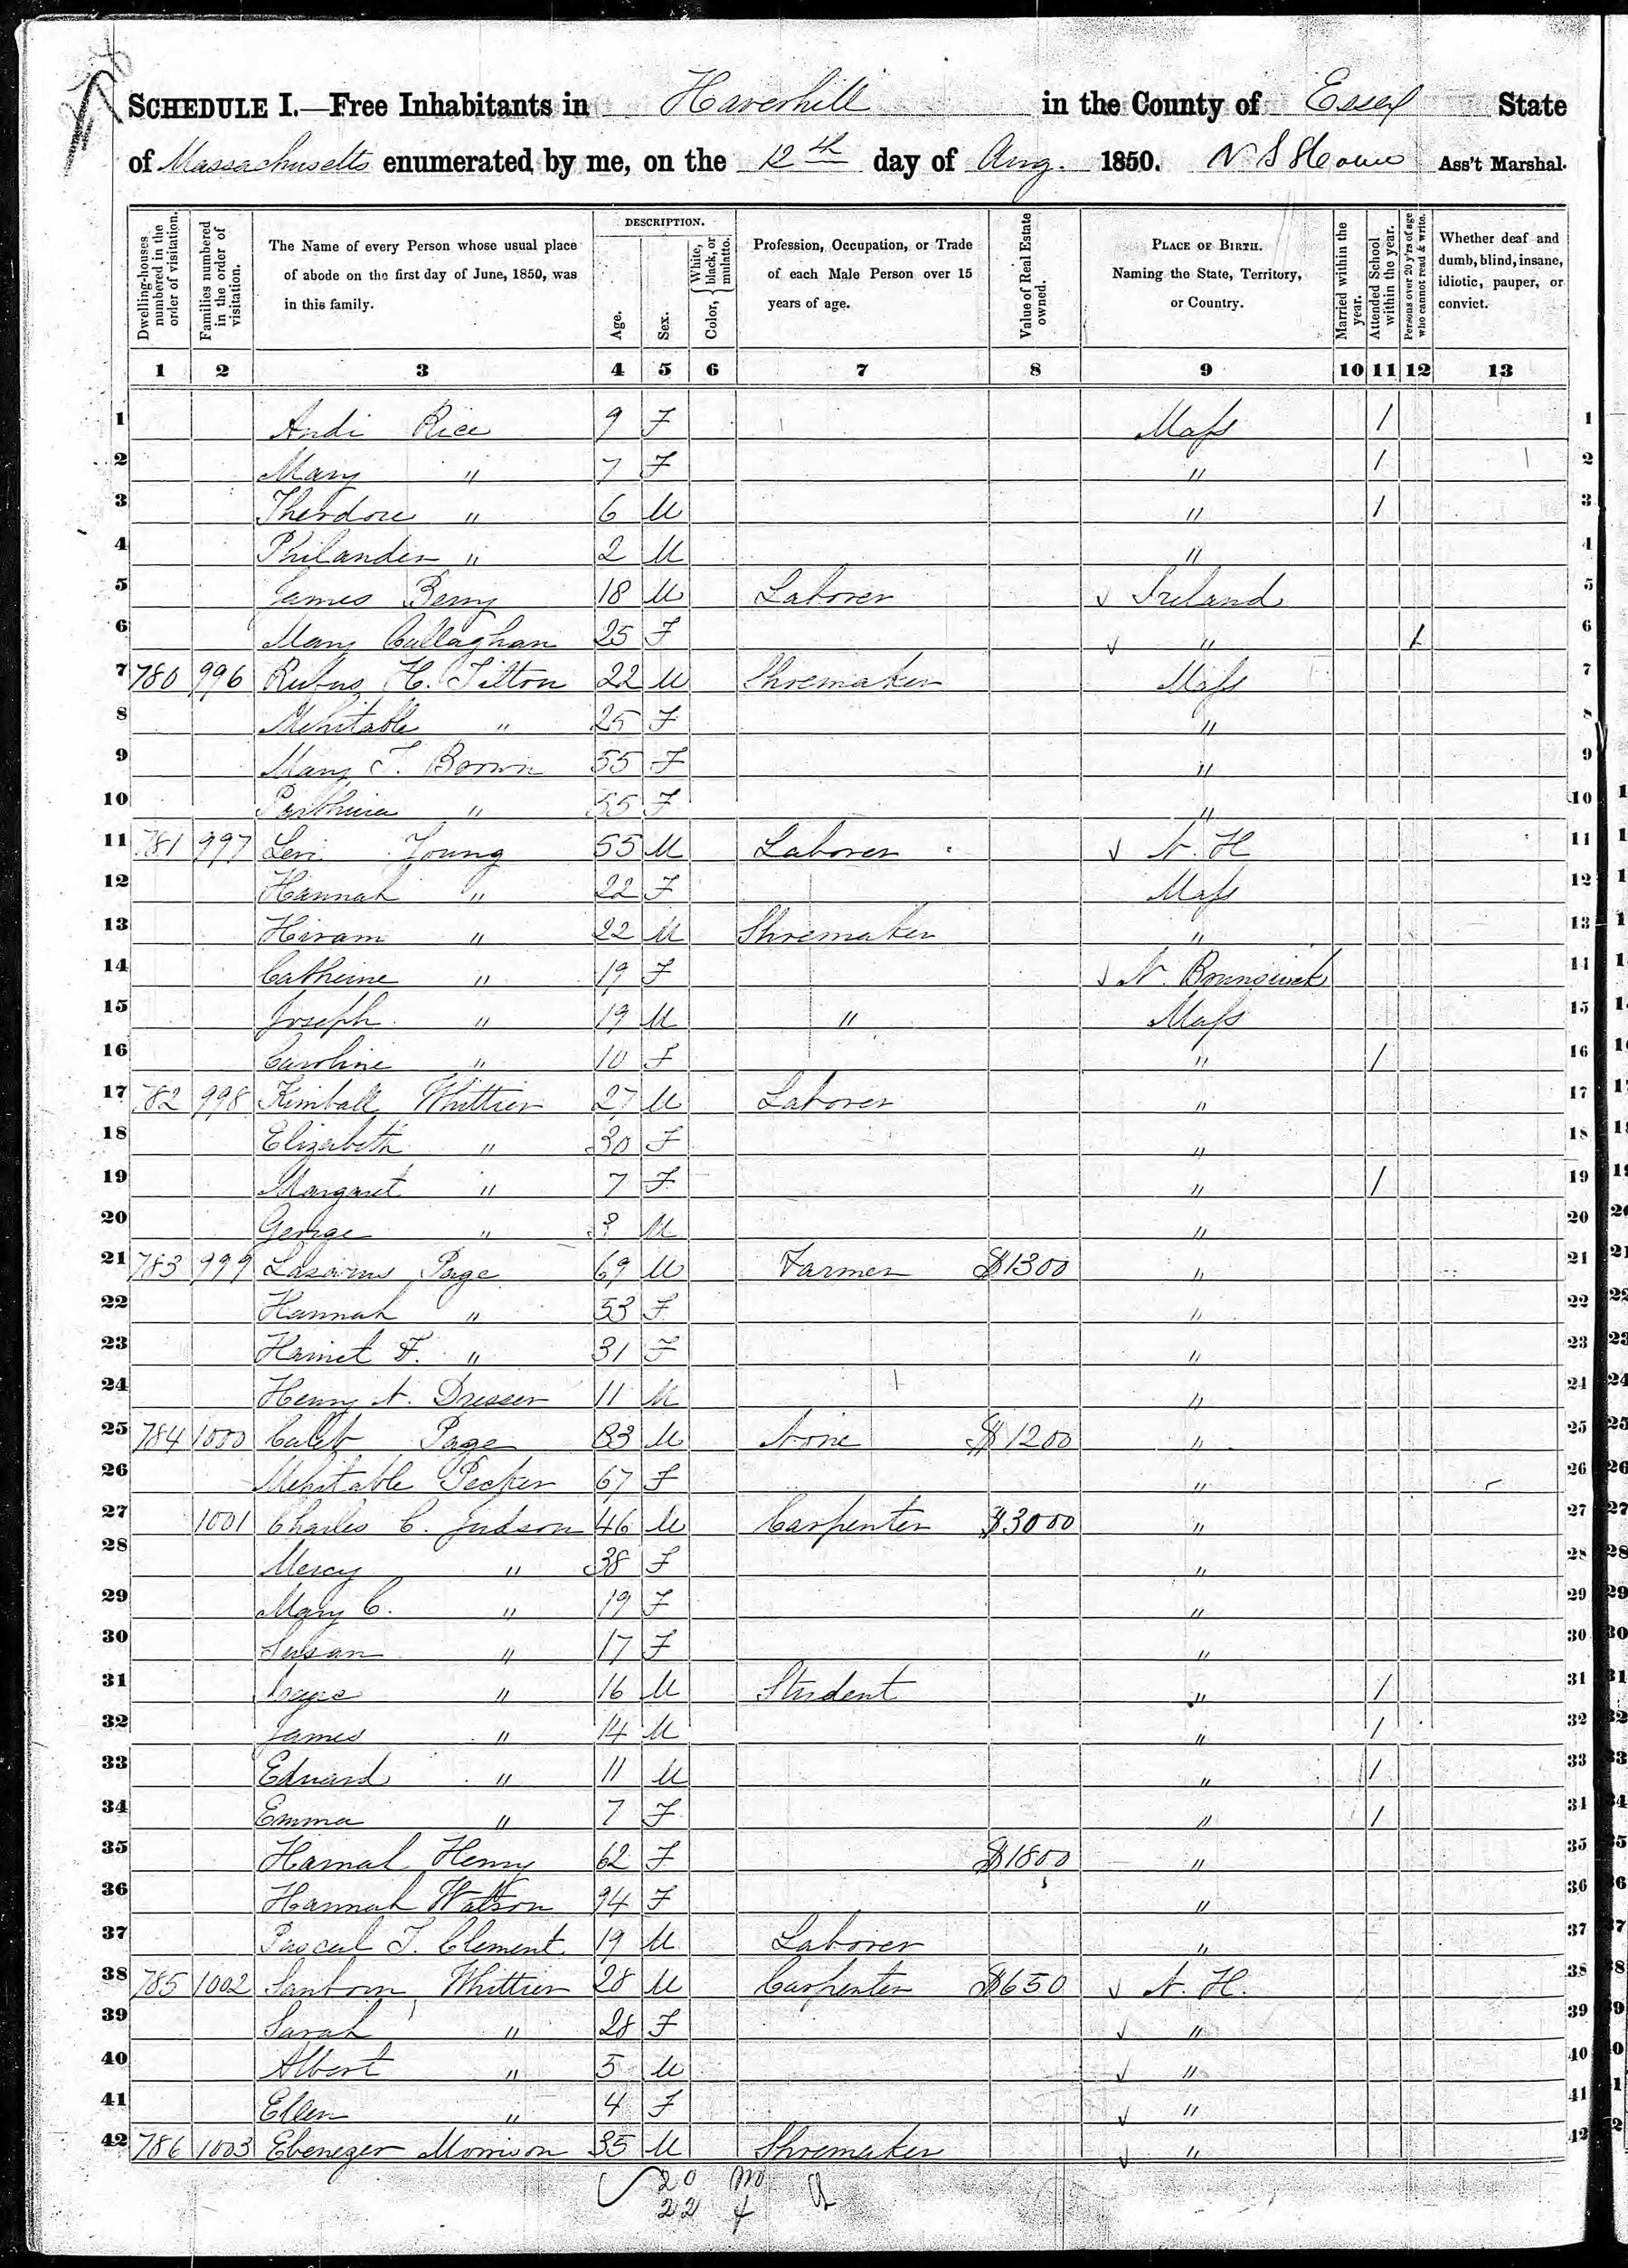 SCHEDULE I.—Free Inhabitants in Haverhill in the County of Essex State
of Massachusetts enumerated by me, on the 12th day of Aug. 1850. N S Howe Ass't Marshal.
Dwelling-houses numbered in the order of visitation.
Families numbered in the order of visitation.
The Name of every Person whose usual place of abode on the first day of June, 1850, was in this family.
DESCRIPTION.
Age.
Sex.
Color, { White, black, or mulatto.
Profession, Occupation, or Trade of each Male Person over 15 years of age.
Value of Real Estate owned.
PLACE OF BIRTH. Naming the State, Territory, or Country.
Married within the year.
Attended School within the year.
Persons over 20 y'rs of age who cannot read & write.
Whether deaf and dumb, blind, insane, idiotic, pauper, or convict.
1 2 3 4 5 6 7 8 9 10 11 12 13
1 Andi Rice 9 F Mass / 1
2 Mary " 7 F " / 2
3 Theodore " 6 M " / 3
4 Philander " 2 M " 4
5 James Berry 18 M Laborer √ Ireland 5
6 Mary Callaghan 25 F √ " / 6
7 780 996 Rufus H. Tilton 22 M Shoemaker Mass 7
8 Mehitable " 25 F " 8
9 Mary T. Brown 55 F " 9
10 " 55 F " 10
11 781 997 Levi Young 55 M Laborer √ N. H 11
12 Hannah " 22 F Mass 12
13 Hiram " 22 M Shoemaker " 13
14 Catherine " 19 F √ N. Brunswick 14
15 Joseph " 19 M " Mass 15
16 Caroline " 10 F " / 16
17 782 998 Kimball Whittier 27 M Laborer " 17
18 Elizabeth " 30 F " 18
19 Margaret " 7 F " / 19
20 George " M " 20
21 783 999 Page 69 M Farmer $1300 " 21
22 Hannah " 53 F " 22
23 Harriet F. " 31 F " 23
24 Henry N. Dresser 11 M " 24
25 784 1000 Caleb Page 83 M None $1200 " 25
26 Mehitable Pecker 67 F " 26
27 1001 Charles C. Judson 46 M Carpenter $3000 " 27
28 Mercy " 38 F " 28
29 Mary C. " 19 F " 29
30 Susan " 17 F " 30
31 Isaac " 16 M Student " / 31
32 James " 14 M " / 32
33 Edward " 11 M " / 33
34 Emma " 7 F " / 34
35 Hannah Henry 62 F $1800 " 35
36 Hannah Watson 94 F " 36
37 Pascal T. Clement 19 M Laborer " 37
38 785 1002 Sanborn Whittier 28 M Carpenter $650 √ N. H. 38
39 Sarah " 28 F √ " 39
40 Albert " 5 M √ " 40
41 Ellen " 4 F √ " 41
42 786 1003 Ebenezer Morrison 35 M Shoemaker √ " 42
20 m
22 f